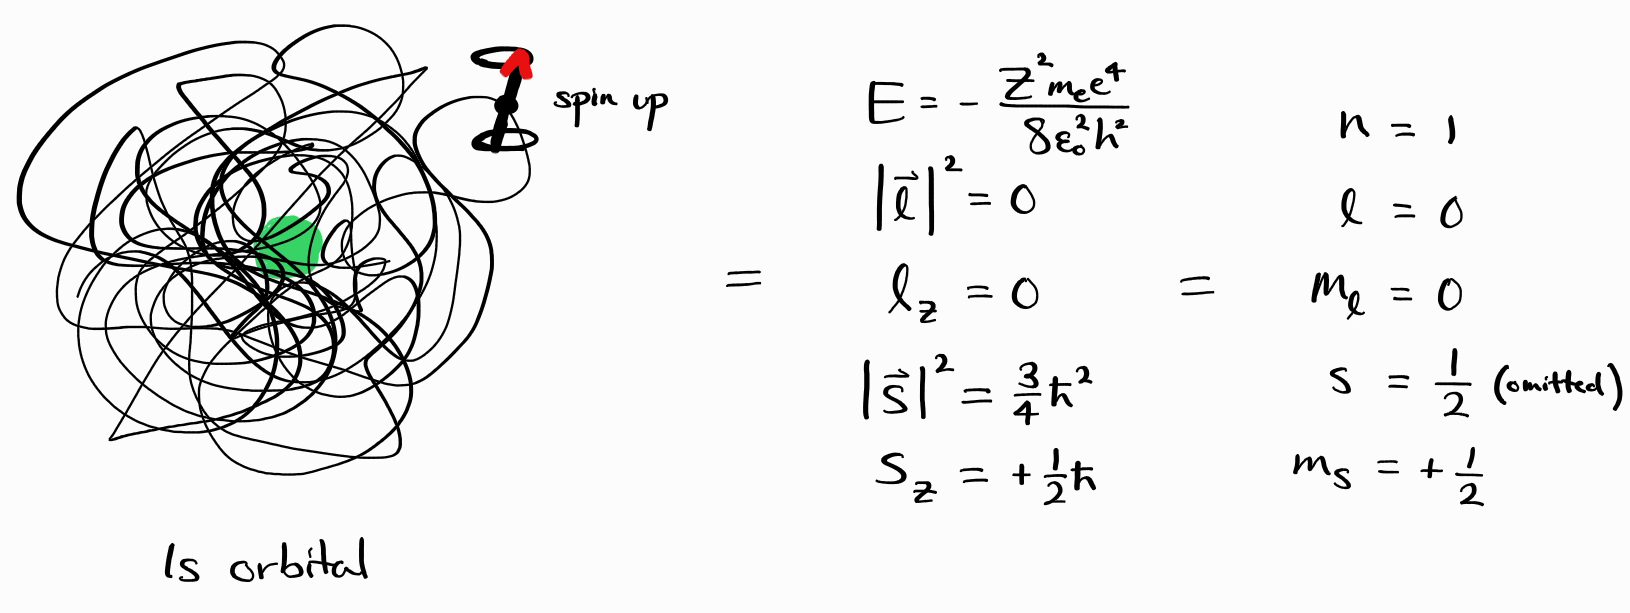 spin up
1s orbital
=
E = - Z²mₑe⁴ / 8ε₀²h²
|l⃗|² = 0
l_z = 0
|s⃗|² = 3/4 ħ²
S_z = + 1/2 ħ
=
n = 1
l = 0
m_l = 0
s = 1/2 (omitted)
m_s = + 1/2